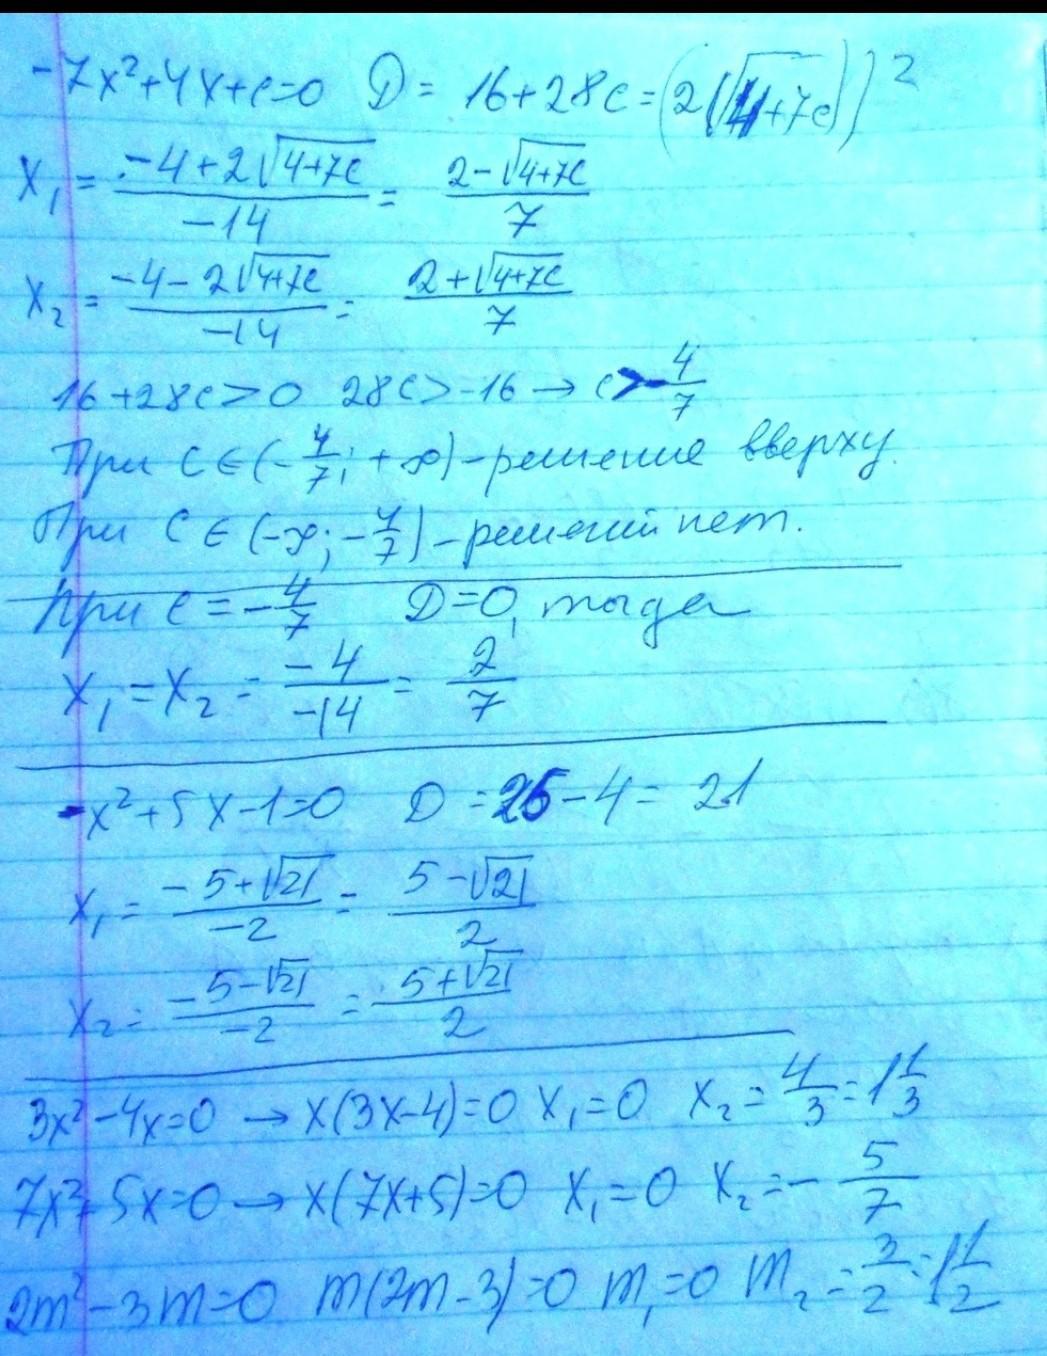 -7x²+4x+c=0 D = 16+28c=(2(√4+7c))²
x₁ = (-4+2√(4+7c))/(-14) = (2-√(4+7c))/7
x₂ = (-4-2√(4+7c))/(-14) = (2+√(4+7c))/7
16+28c>0 28c>-16 → c>-4/7
При c∈(-4/7; +∞) - решение вверху.
При c∈(-∞; -4/7) - решений нет.
При c = -4/7 D=0, тогда
x₁=x₂ = -4/-14 = 2/7
-x²+5x-1=0 D = 25-4= 21
x₁ = (-5+√21)/(-2) = (5-√21)/2
x₂ = (-5-√21)/(-2) = (5+√21)/2
3x²-4x=0 → x(3x-4)=0 x₁=0 x₂=4/3=1 1/3
7x²+5x=0 → x(7x+5)=0 x₁=0 x₂=-5/7
2m²-3m=0 m(2m-3)=0 m₁=0 m₂=3/2=1 1/2